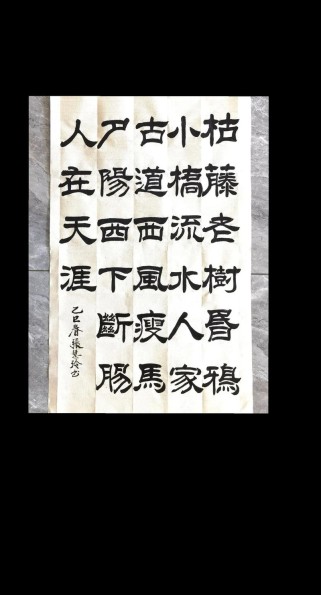 枯藤老樹昏鴉
小橋流水人家
古道西風瘦馬
夕陽西下斷腸
人在天涯
乙巳春張慧玲書